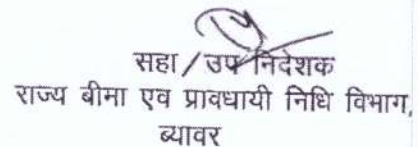 सहा/उप निदेशक
राज्य बीमा एव प्रावधायी निधि विभाग,
ब्यावर